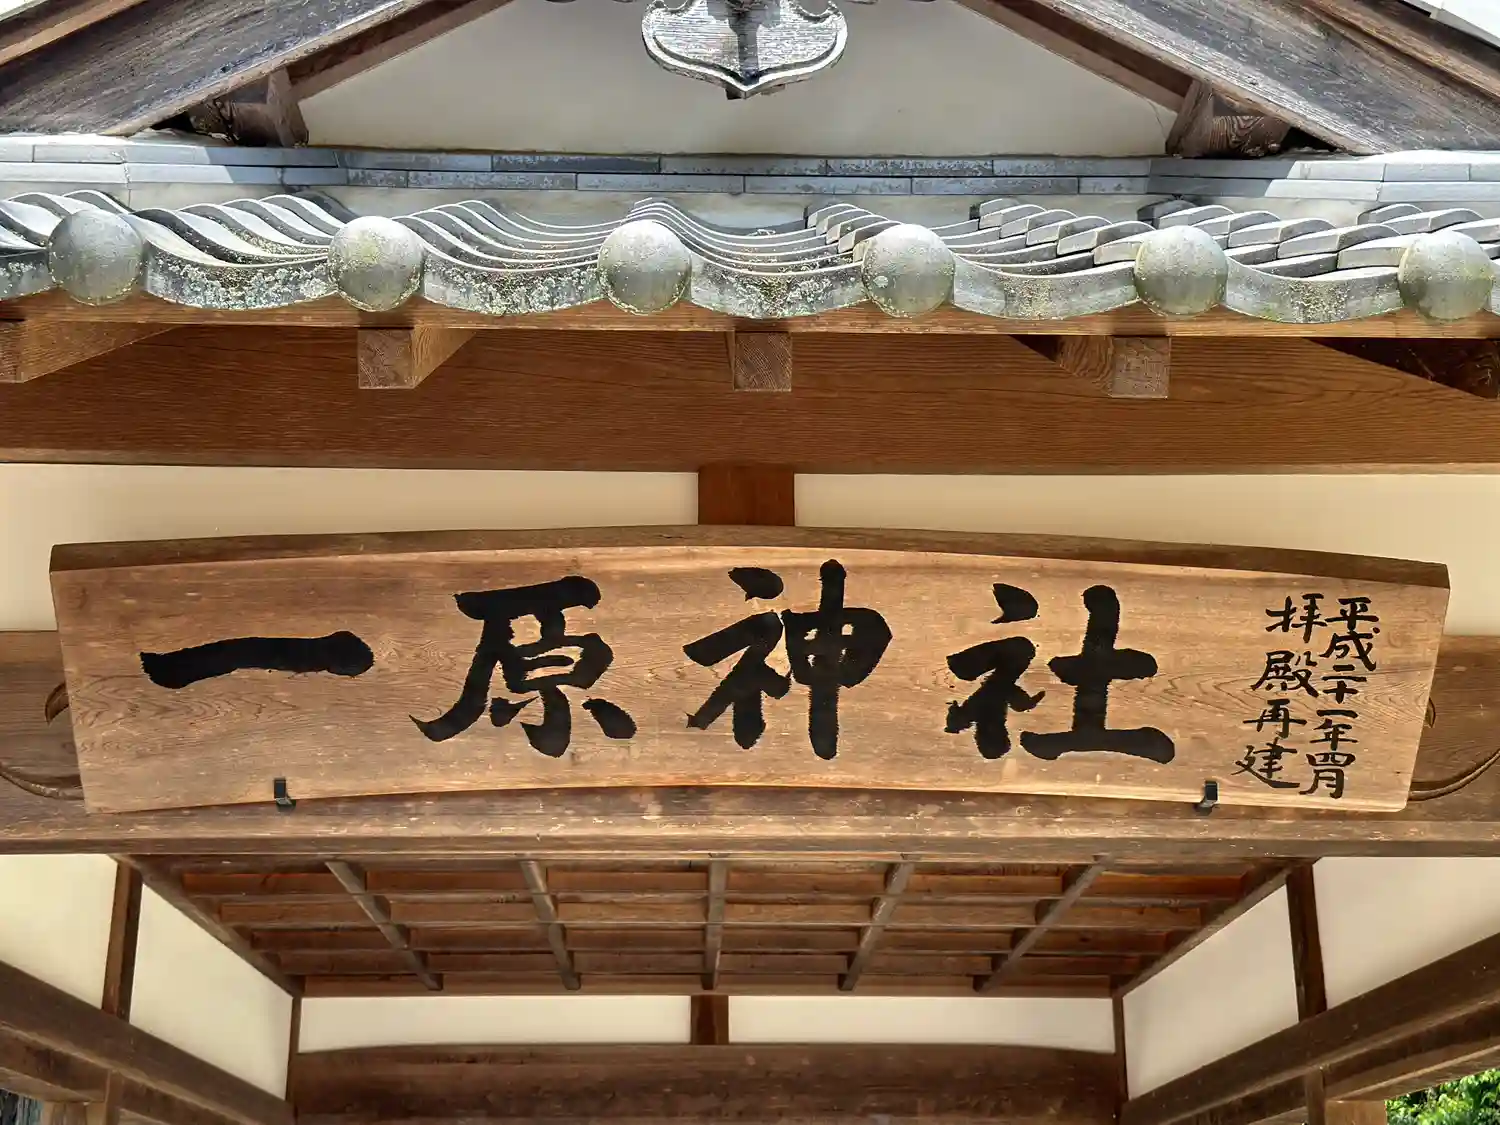 一原神社
平成二十一年四月
拝殿再建